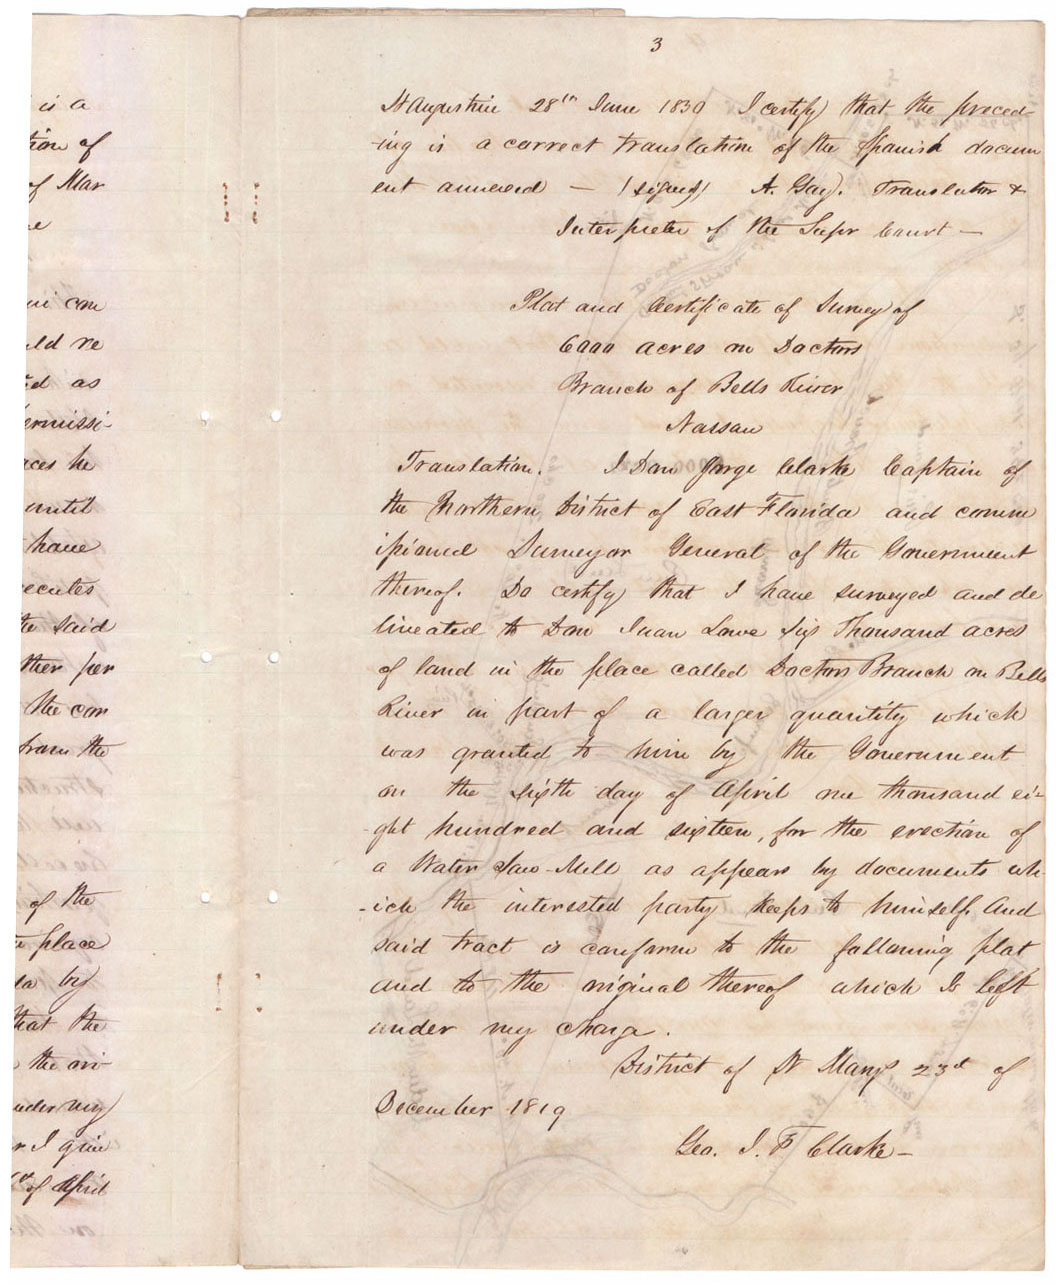 is a
tion of
of Mar
ni con
uld re
ed as
ermissi-
aces he
until
have
xecutes
the said
ther per
the con
from the
of the
place
by
that the
the ori-
under my
r I give
of April
3
St Augustin 28th June 1830 I certify that the preced
-ing is a correct translation of the Spanish docum
ent annexed — (signed) A. Gay. Translator &
Interpreter of the Supr Court —
Plat and Certificate of Survey of
6000 acres on Doctors
Branch of Bells River
Nassau
Translation. I Don Jorge Clarke Captain of
the Northern District of East Florida and comm
issioned Surveyor General of the Government
thereof. Do certify that I have surveyed and de
lineated to Don Juan Lowe six Thousand acres
of land in the place called Doctors Branch on Bells
River in part of a larger quantity which
was granted to him by the Government
on the sixth day of April one thousand ei-
-ght hundred and sixteen, for the erection of
a Water Saw-Mill as appears by documents wh-
-ich the interested party keeps to himself. And
said tract is conform to the following plat
and to the original thereof which is left
under my charge.
District of St Marys 23d of
December 1819
Geo. J. F Clarke —